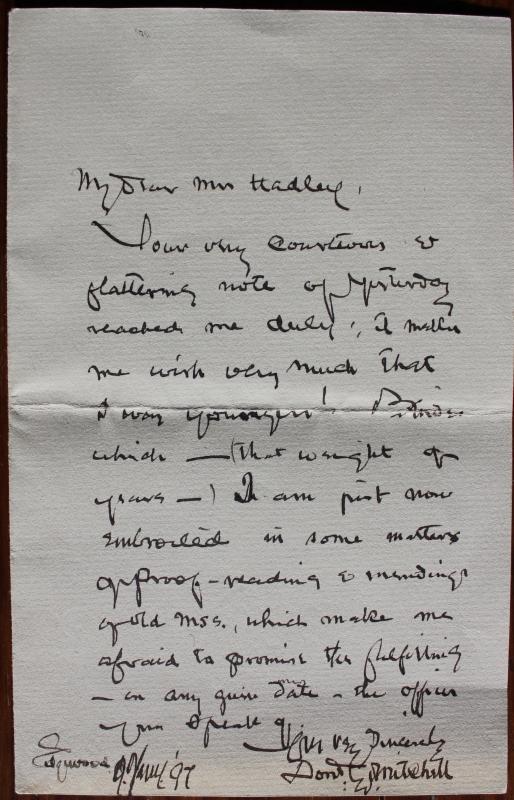 My Dear Mrs Hadley,
Your very courteous &
flattering note of yesterday
reached me duly; it makes
me wish very much that
I was younger! Besides
which — (that weight of
years —) I am just now
embroiled in some matters
of proof-reading & mendings
of old Mss., which make me
afraid to promise the fulfilling
— on any given date — the offices
you speak of
Yours very Sincerely
Don. G. Mitchell
Edgewood '97